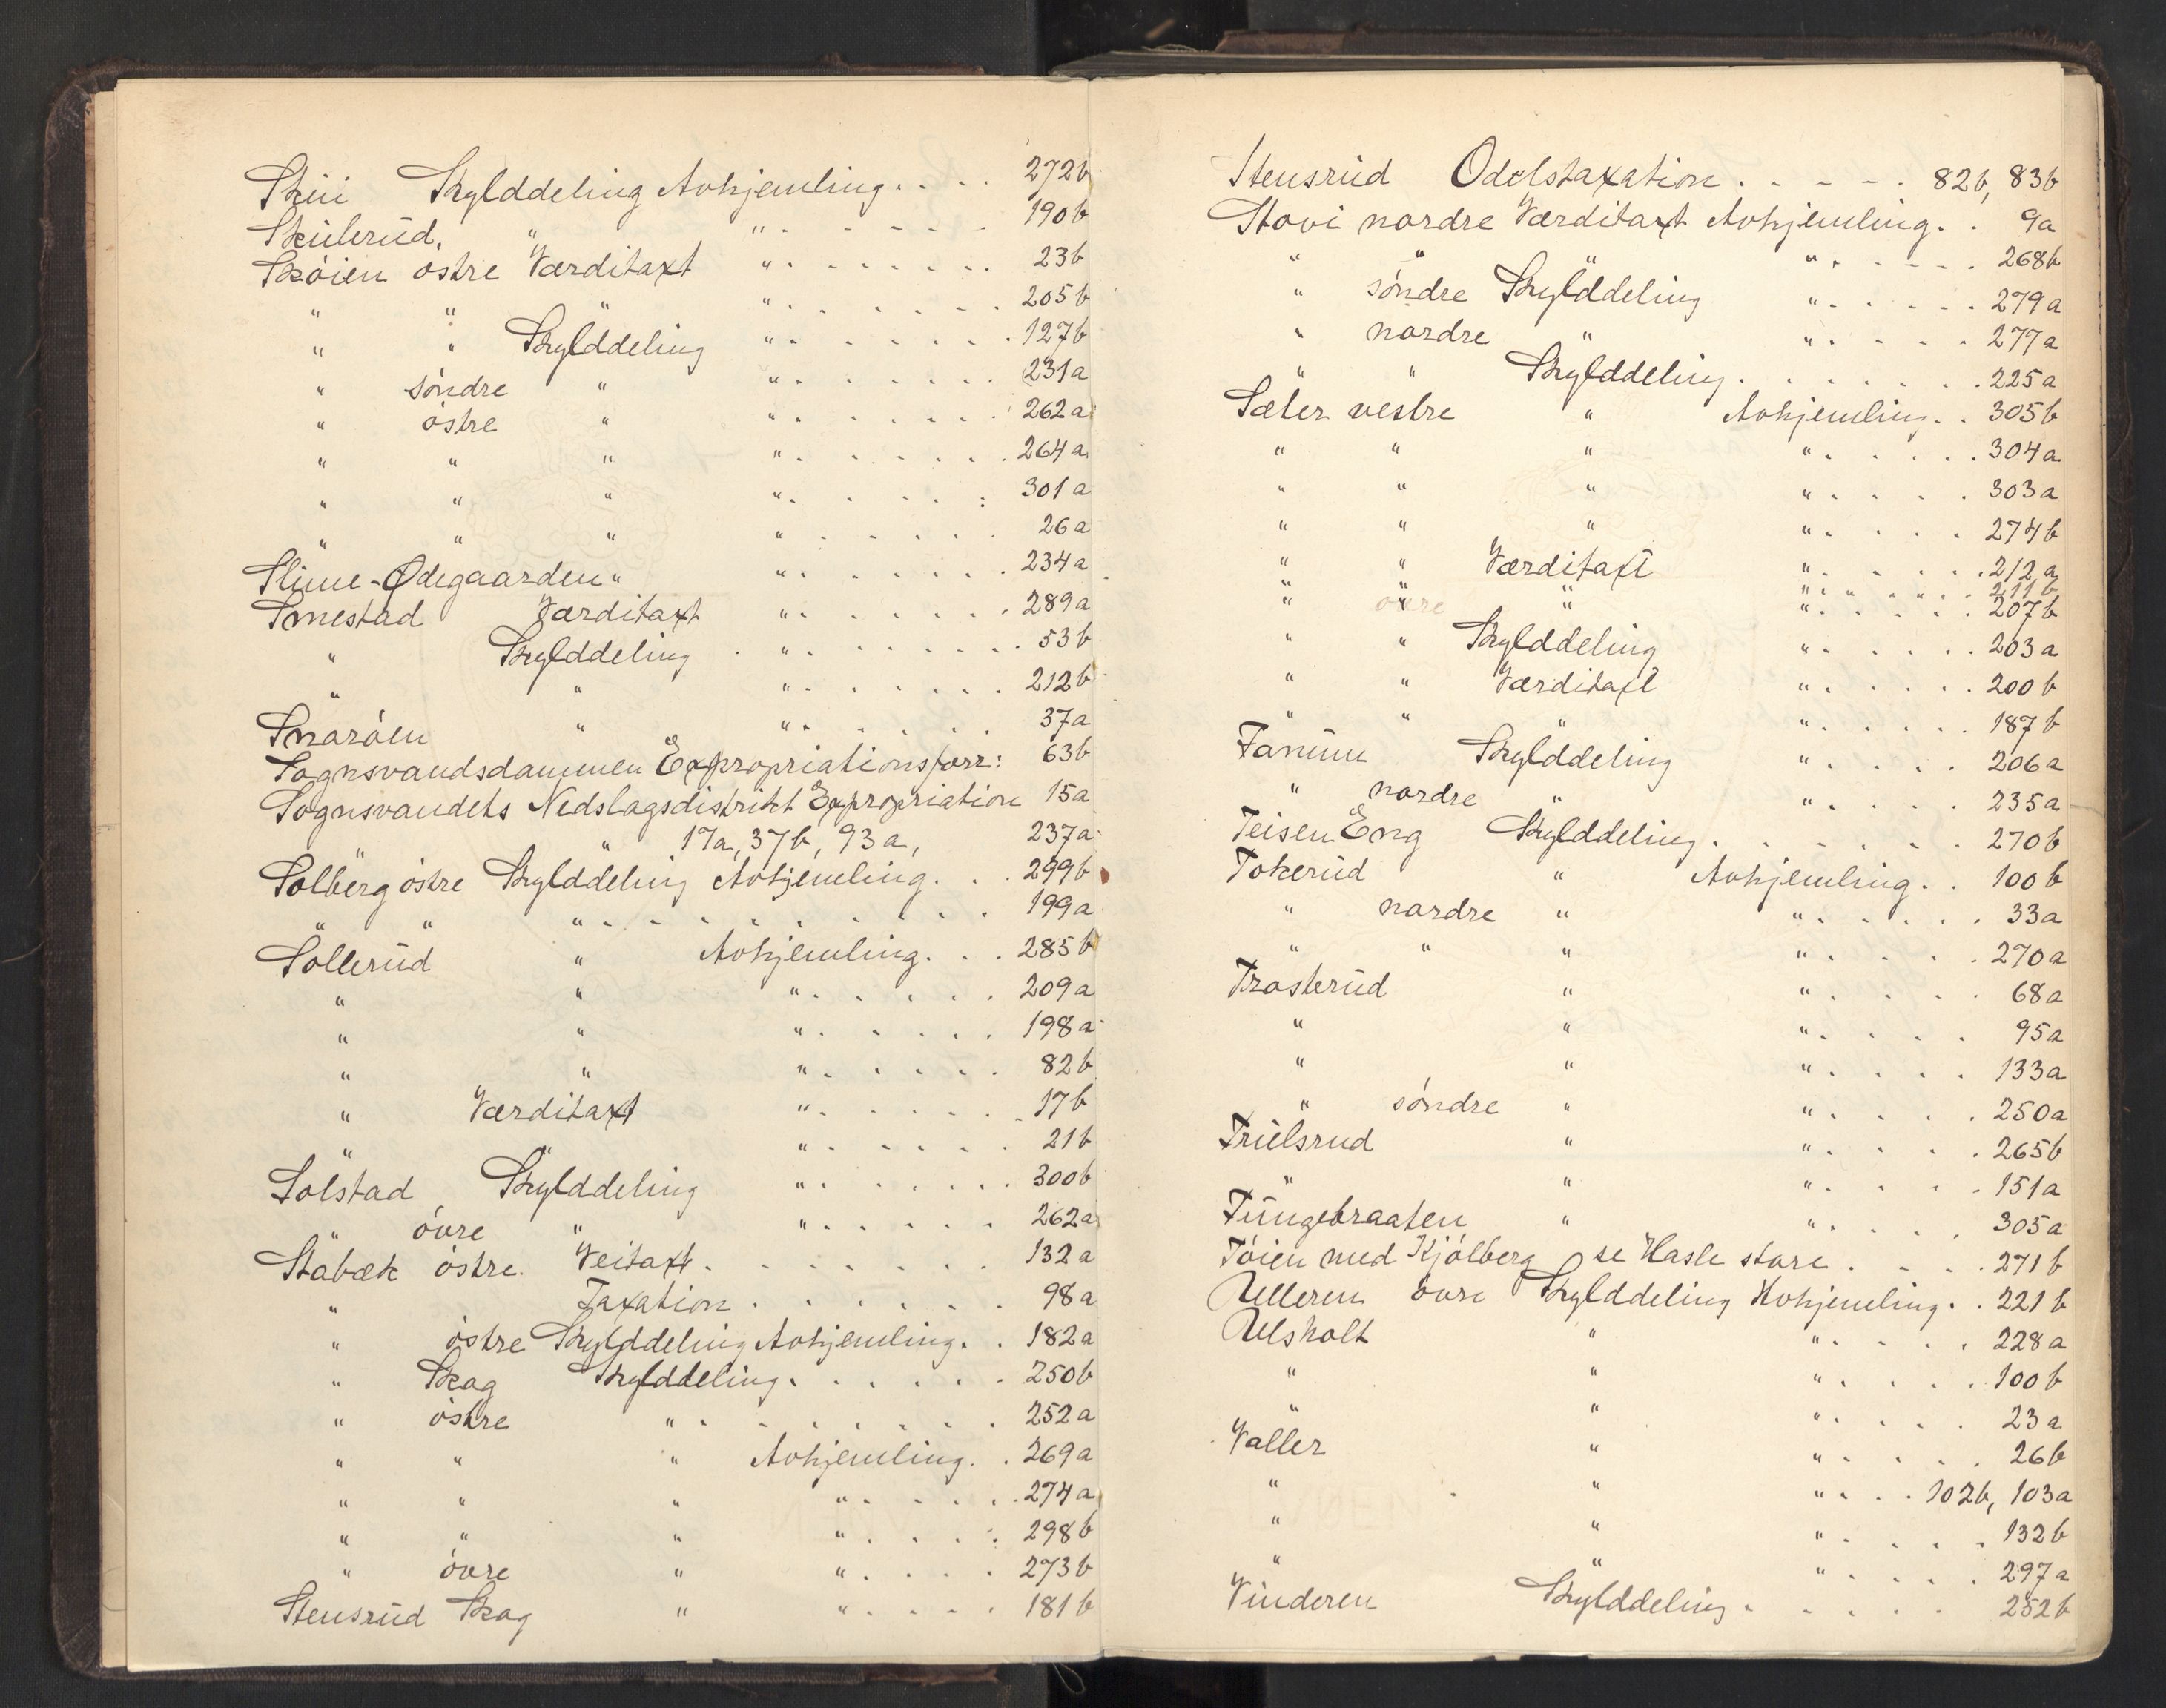 Skui Skylddeling Avhjemling . . . . 272b
Skulerud. " " . . . . . . 190b
Skøien østre Værditaxt " . . . . . . . 23b
" " " " . . . . . . 205b
" " Skylddeling " . . . . . . . 127b
" søndre " " . . . . . . . 231a
" østre " " . . . . . . 262a
" " " " . . . . . . 264a
" " " " . . . . . 301a
" " " " . . . . . . 26a
Slime-Ødegaarden " " . . . . . . 234a
Smestad Værditaxt " . . . . . . 289a
" Skylddeling " . . . . . . . 53b
" " " . . . . . . 212b
Snarøen " " . . . . . 37a
Sognsvandsdammen Expropriationsforr: 63b
Sognsvandets Nedslagsdistrikt Expropriation 15a
" 17a, 37b, 93a, 237a
Solberg østre Skylddeling Avhjemling . . . 299b
" " " . . . . . . . . . . . 199a
Sollerud " Avhjemling . . . 285b
" " " . . . . . . 209a
" " " . . . . . . 198a
" " " . . . . . . 82b
" Værditaxt " . . . . . . 17b
" " " . . . . . . 21b
Solstad Skylddeling " . . . . . . 300b
" øvre " " . . . . . . 262a
Stabæk østre Veitaxt . . . . . . . . 132a
" Taxation . . . . . . . 98a
" østre Skylddeling Avhjemling . . 182a
" Skog Skylddeling . . . . . . 250b
" østre " . . . . . . . . . 252a
" " " Avhjemling . . 269a
" " " " . . . . . 274a
" " " " . . . . . 298b
" øvre " " . . . . . 273b
Stensrud Skog " " . . . . . 181b
Stensrud Odelstaxation . . . . . 82b, 83b
Stovi nordre Værditaxt Avhjemling . . 9a
" " " " . . . . . 268b
" søndre Skylddeling " . . . . . 279a
" nordre " " . . . . . 277a
" " Skylddeling . . . . . . . 225a
Sæter vestre " Avhjemling . . 305b
" " " " . . . . . 304a
" " " " . . . . . 303a
" " " " . . . . . 274b
" " Værditaxt " . . . . . 212a
" " " " . . . . . 211b
" øvre " " . . . . . 207b
" " Skylddeling " . . . . . 203a
" " Værditaxt " . . . . . 200b
" " " " . . . . . 187b
Tanum Skylddeling " . . . . . 206a
" nordre " " . . . . . 235a
Teisen Eng Skylddeling . . . . . . . 270b
Tokerud " Avhjemling . . 100b
" nordre " " . . . . . 33a
" " " " . . . . . 270a
Trosterud " " . . . . . 68a
" " " . . . . . 95a
" " " . . . . . 133a
" søndre " " . . . . . 250a
Trulsrud " " . . . . . 265b
" " " . . . . . 151a
Tungebraaten " " . . . . . 305a
Tøien med Kjølberg se Hasle store . . . . 271b
Ulleren øvre Skylddeling Avhjemling . . 221b
Ulsholt " " . . . . . 228a
" " " . . . . . 100b
" " " . . . . . 23a
Valler " " . . . . . 26b
" " " . . . 102b, 103a
" " " . . . . . 132b
" " " . . . . . 297a
Vinderen Skylddeling . . . . . . 252b